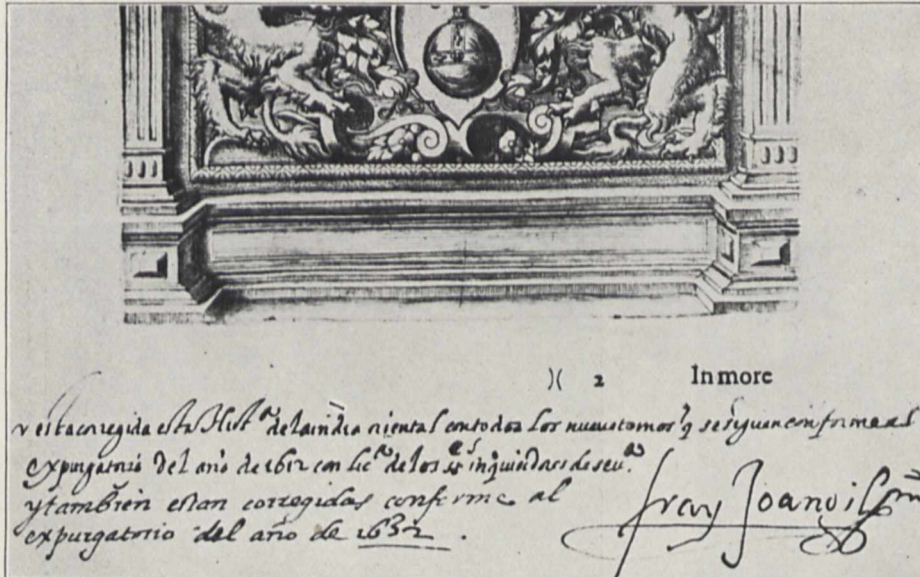 )( 2 In more
esta coregida esta Histª de la india oriental con todos los nueve tomos q se siguen conforme al
expurgatorio del año de 1612 con licª de los sʳᵉˢ inquisidores de seuª
y tambien estan corregidas conforme al
expurgatorio del año de 1632.
fray Joan